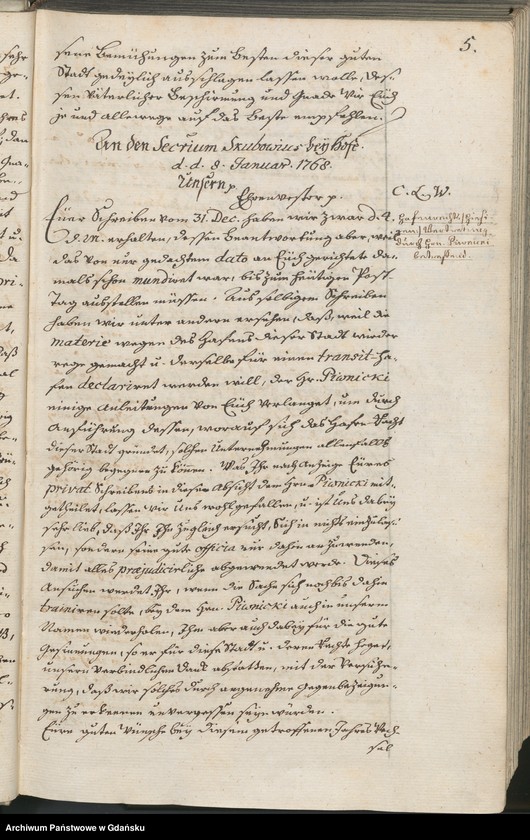 5.
seine Bemühungen zum Besten dieser guten
Stadt gedeylich ausschlagen lassen wolle, des-
sen Väterlicher Beschirmung und Gnade wir Euch
je und allewege auf das Beste empfehlen.
An den Secrium Skubowius bey Hofe.
d. d. 8. Januar. 1768.
Unsern p.
Ehrenvester p.
C. L. W.
Euer Schreiben vom 31. Dec. haben wir zwar d. 4.
erhalten, dessen Beantwortung aber, weil
das von nur gedachtem dato an Euch gerichtete da-
mals schon mundirt war, bis zum heutigen Post-
Tag ausstellen müssen. Aus selbigem Schreiben
haben wir unter andern ersehen, daß, weil die
materie wegen des Hafens dieser Stadt wieder
rege gemacht u. derselbe für einen transit-Ha-
fen declariret werden will, der Hr. Piwnicki
einige Anleitungen von Euch verlanget, um durch
Anführung dessen, worauf sich das Hafen-Recht
dieser Stadt gründet, solchen Unternehmungen allenfalls
gehörig begegnen zu können. Was Ihr nach Anzeige Eures
privat Schreibens in dieser Absicht dem Hrn Piwnicki mit-
getheilet, lassen wir uns wohlgefallen, u. ist uns dabey
sehr lieb, daß Ihr Ihn zugleich ersucht, sich in nichts einzulas-
sen, sondern seine gute officia nur dahin anzuwenden,
damit alles præjudicirliche abgewendet werde. Dieses
Ansuchen werdet Ihr, wenn die Sache sich noch bis dahin
trainiren sollte, bey dem Hrn. Piwnicki auch in unserm
Namen wiederholen, Ihm aber auch dabey für die gute
Gesinnungen, so er für diese Stadt u. deren Rechte heget,
unsern verbindlichen Dank abstatten, mit der Versiche-
rung, daß wir solches durch angenehme Gegenbezeigun-
gen zu erkennen unvergessen seyn würden.
Eure guten Wünsche bey diesem getroffenen Jahres Wech-
sel
Archiwum Państwowe w Gdańsku